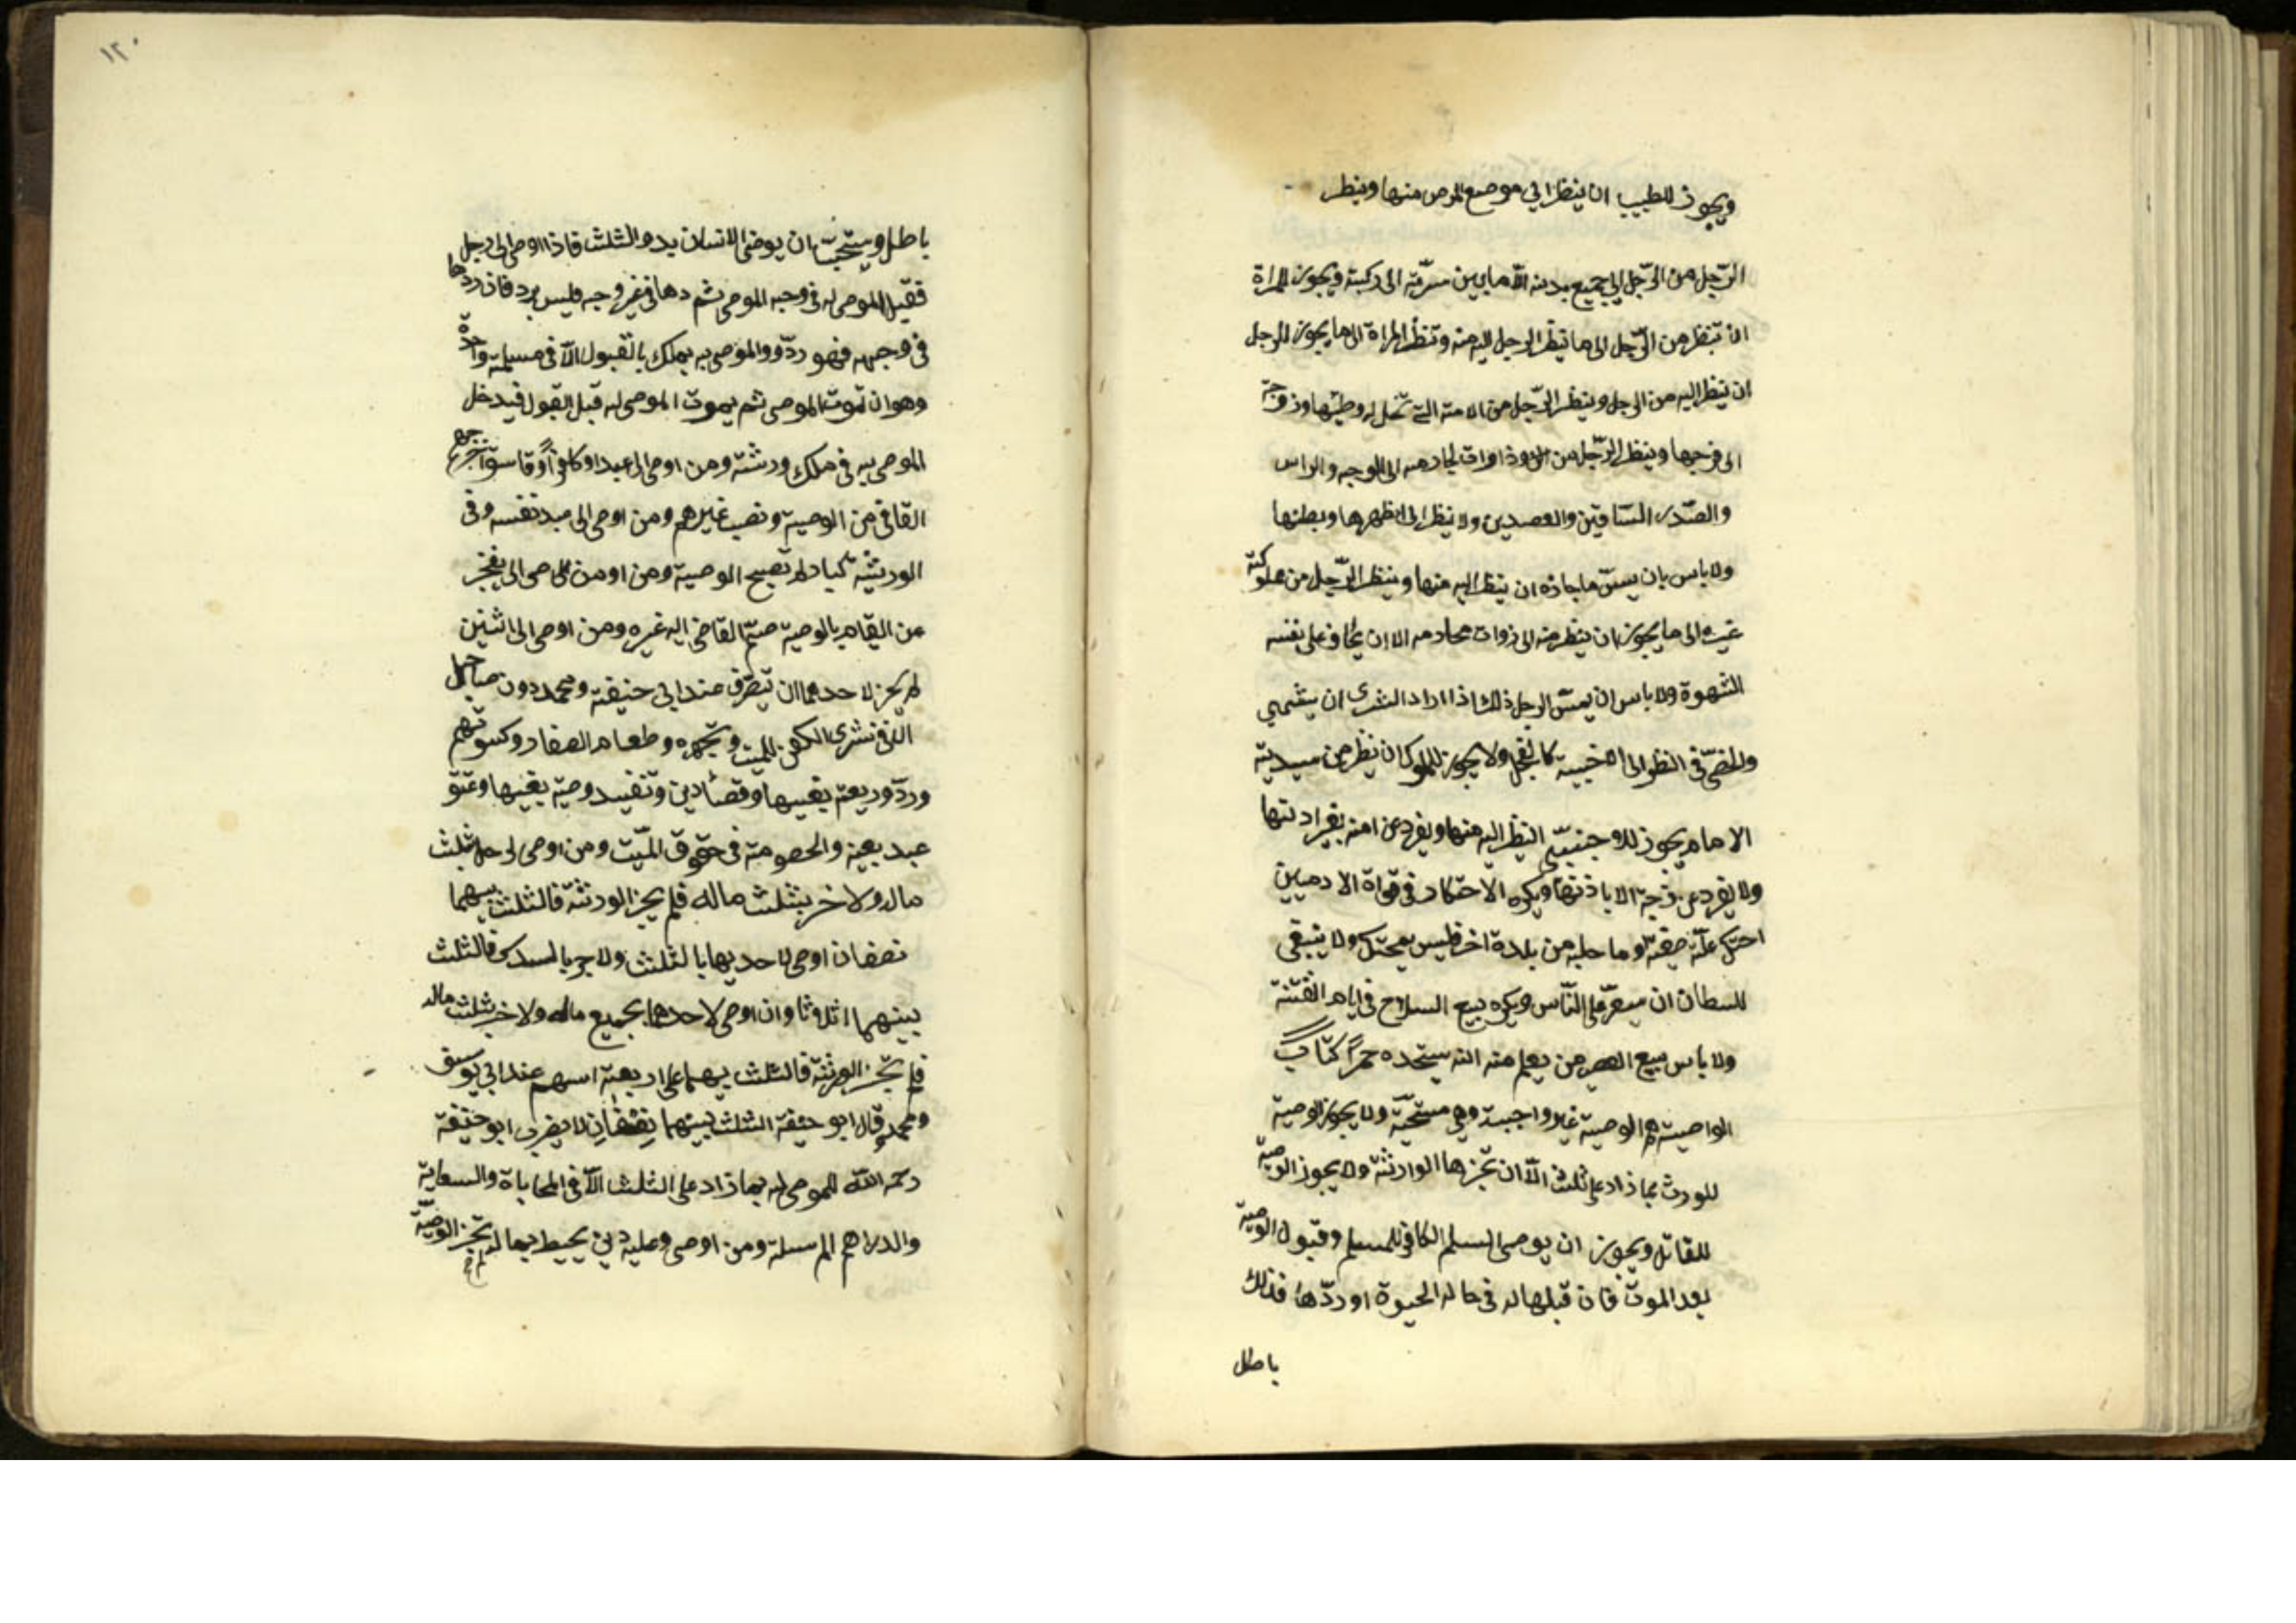 ويجوز للطبيب ان ينظر الي موضع المرض منها وينظر
الرّجل من الرّجل الي جميع بدنه الاّ ما بين سرّته الى ركبته ويجوز للمراة
ان تنظر من الرّجل الى ما ينظر الرجل اليه منه وتنظر المراة الى ما يجوز للرجل
ان ينظر اليه من الرجل وينظر الرّجل من الامته التي تحل له وطيها وزوجته
الى فرجها وينظر الرّجل من ذوات محارمه الى الوجه والراس
والصّدر السّاقين والعضدين ولا ينظر الى ظهرها وبطنها
ولا باس بان يمسّ ما جاز ه ان ينظر اليه منها وينظر الرّجل من مملوكته
غيره الى ما يجوز ان ينظر منه الى ذوات محارمه الا ان يخاف على نفسه
الشهوة ولا باس ان يمسّ الرجل ذلك اذا اراد الشرى ان يشتهي
والخصيّ في النظر الى الاجنبية كالفحل ولا يجوز للملوك ان ينظر من سيدته
الا ما يجوز للاجنبيّ النظر اليه منها ويفرد عن امته بغير ادنها
ولا يفرد عن زوجته الا باذنها ويكره الاحتكار في قواة الادميين
احتكر غلّة ضيعته وما جلبه من بلدة اخر فليس بمحتكر ولا ينبغى
للسطان ان يسعّر على النّاس ويكره بيع السلاح في ايام الفتنة
ولا باس ببيع العصير من يعلم منه انه يتخذه خمراً كتاب
الواصية الوصية غير واجبة وهي مستحبّة ولا يجوز الوصية
للورث بما زاد على ثلث الاّ ان تجزها الوارثة ولا يجوز الوصية
للقاتل ويجوز ان يوصى المسلم الكافر للمسلم وقبول الوصية
بعد الموت فان قبلها له في حاله الحيوة او ردّها فذلك
باطل
١٢٠
باطل ويستحبّ ان يوصى الانسان بدو الثلث فاذا اوصى الى رجل
فقبل الموصى له في وجه الموصى ثم دها في غير وجه فليس برد فان ردّها
في وجهه فهو ردّ و والموصى به يملك بالقبول الاّ في مسيلة واحدة
وهو ان تموت الموصى ثم يموت الموصى له قبل القبول فيدخل
الموصى به في ملك ورشته ومن اوصى الى عبد او كافراً او فاسق اخرجهم
القاضى من الوصية ونصب غيرهم ومن اوصى الى عبد نفسه وفى
الورثة كبار لم تصح الوصية ومن اوصى الى يعجز
عن القيام بالوصية ضمّ القاضى اليه غيره ومن اوصى الى اثنين
لم يجز لاحدهما ان يتصرّف عند ابى حنيفة ومحمد دون صاحبه
الا في شرى الكفن للميت وتجهزه وطعام الصغار وكسوتهم
وردّ وريعة بعينها وقضآ دين وتنفيد وصية بعينها وعتق
عبد بعينه والخصومة في حقوق الميّت ومن اوصى لرجل بثلث
ماله ولاخر بثلث ماله فلم يجز الورثة فالثلث بينهما
نصفان اوصى لاحديهما بالثلث ولاجر بالسدس فالثلث
بينهما اثلوثا وان اوصى لاحدهما بجميع ماله ولاخر بثلث ماله
فلم تجز الورثة فالثلث بينهما على اربعة اسهم عند ابي يوسف
ومحمد وقال ابو حنيفة الثلث بينهما نصفان لا يضرب ابو حنيفة
رحمه الله للموصى له بما زاد على الثلث الاّ في المحاباة والسعاية
والدراهم المرسلة ومن اوصى وعليه دين يحيط بماله لم تجز الوصيّة